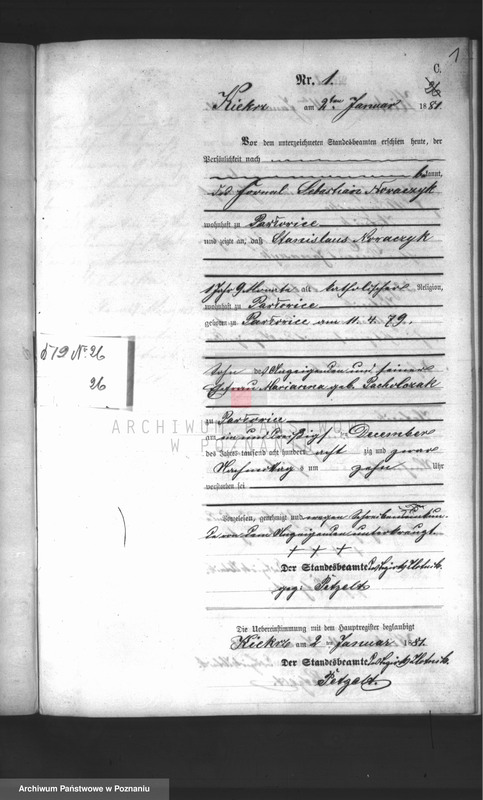 1
C.
26
Nr. 1.
Kiekrz am 2ten Januar 1881.
Vor dem unterzeichneten Standesbeamten erschien heute, der
Persönlichkeit nach
bekannt,
der Fornal Sebastian Nowaczyk
wohnhaft zu Pawłowice
und zeigte an, daß Stanislaus Nowaczyk
1 Jahr 9 Monate alt katholischer Religion,
wohnhaft zu Pawłowice
geboren zu Pawłowice am 11. 4. 79.
d 79 No 26
26
Sohn des Anzeigenden und seiner
Ehefrau Marianna geb. Pacholczak
zu Pawłowice
am ein und dreißigsten December
des Jahres tausend acht hundert acht zig und zwar
Nachmittags um zehn Uhr
verstorben sei
ARCHIWUM PAŃSTWOWE
W POZNANIU
Vorgelesen, genehmigt und wegen Schreibensunkun-
de von dem Anzeigenden unterkreuzt.
+ + +
Der Standesbeamte des Bezirks Złotnik.
gez. Petzelt
Die Uebereinstimmung mit dem Hauptregister beglaubigt
Kiekrz am 2 Januar 1881.
Der Standesbeamte des Bezirks Złotnik.
Petzelt.
Archiwum Państwowe w Poznaniu